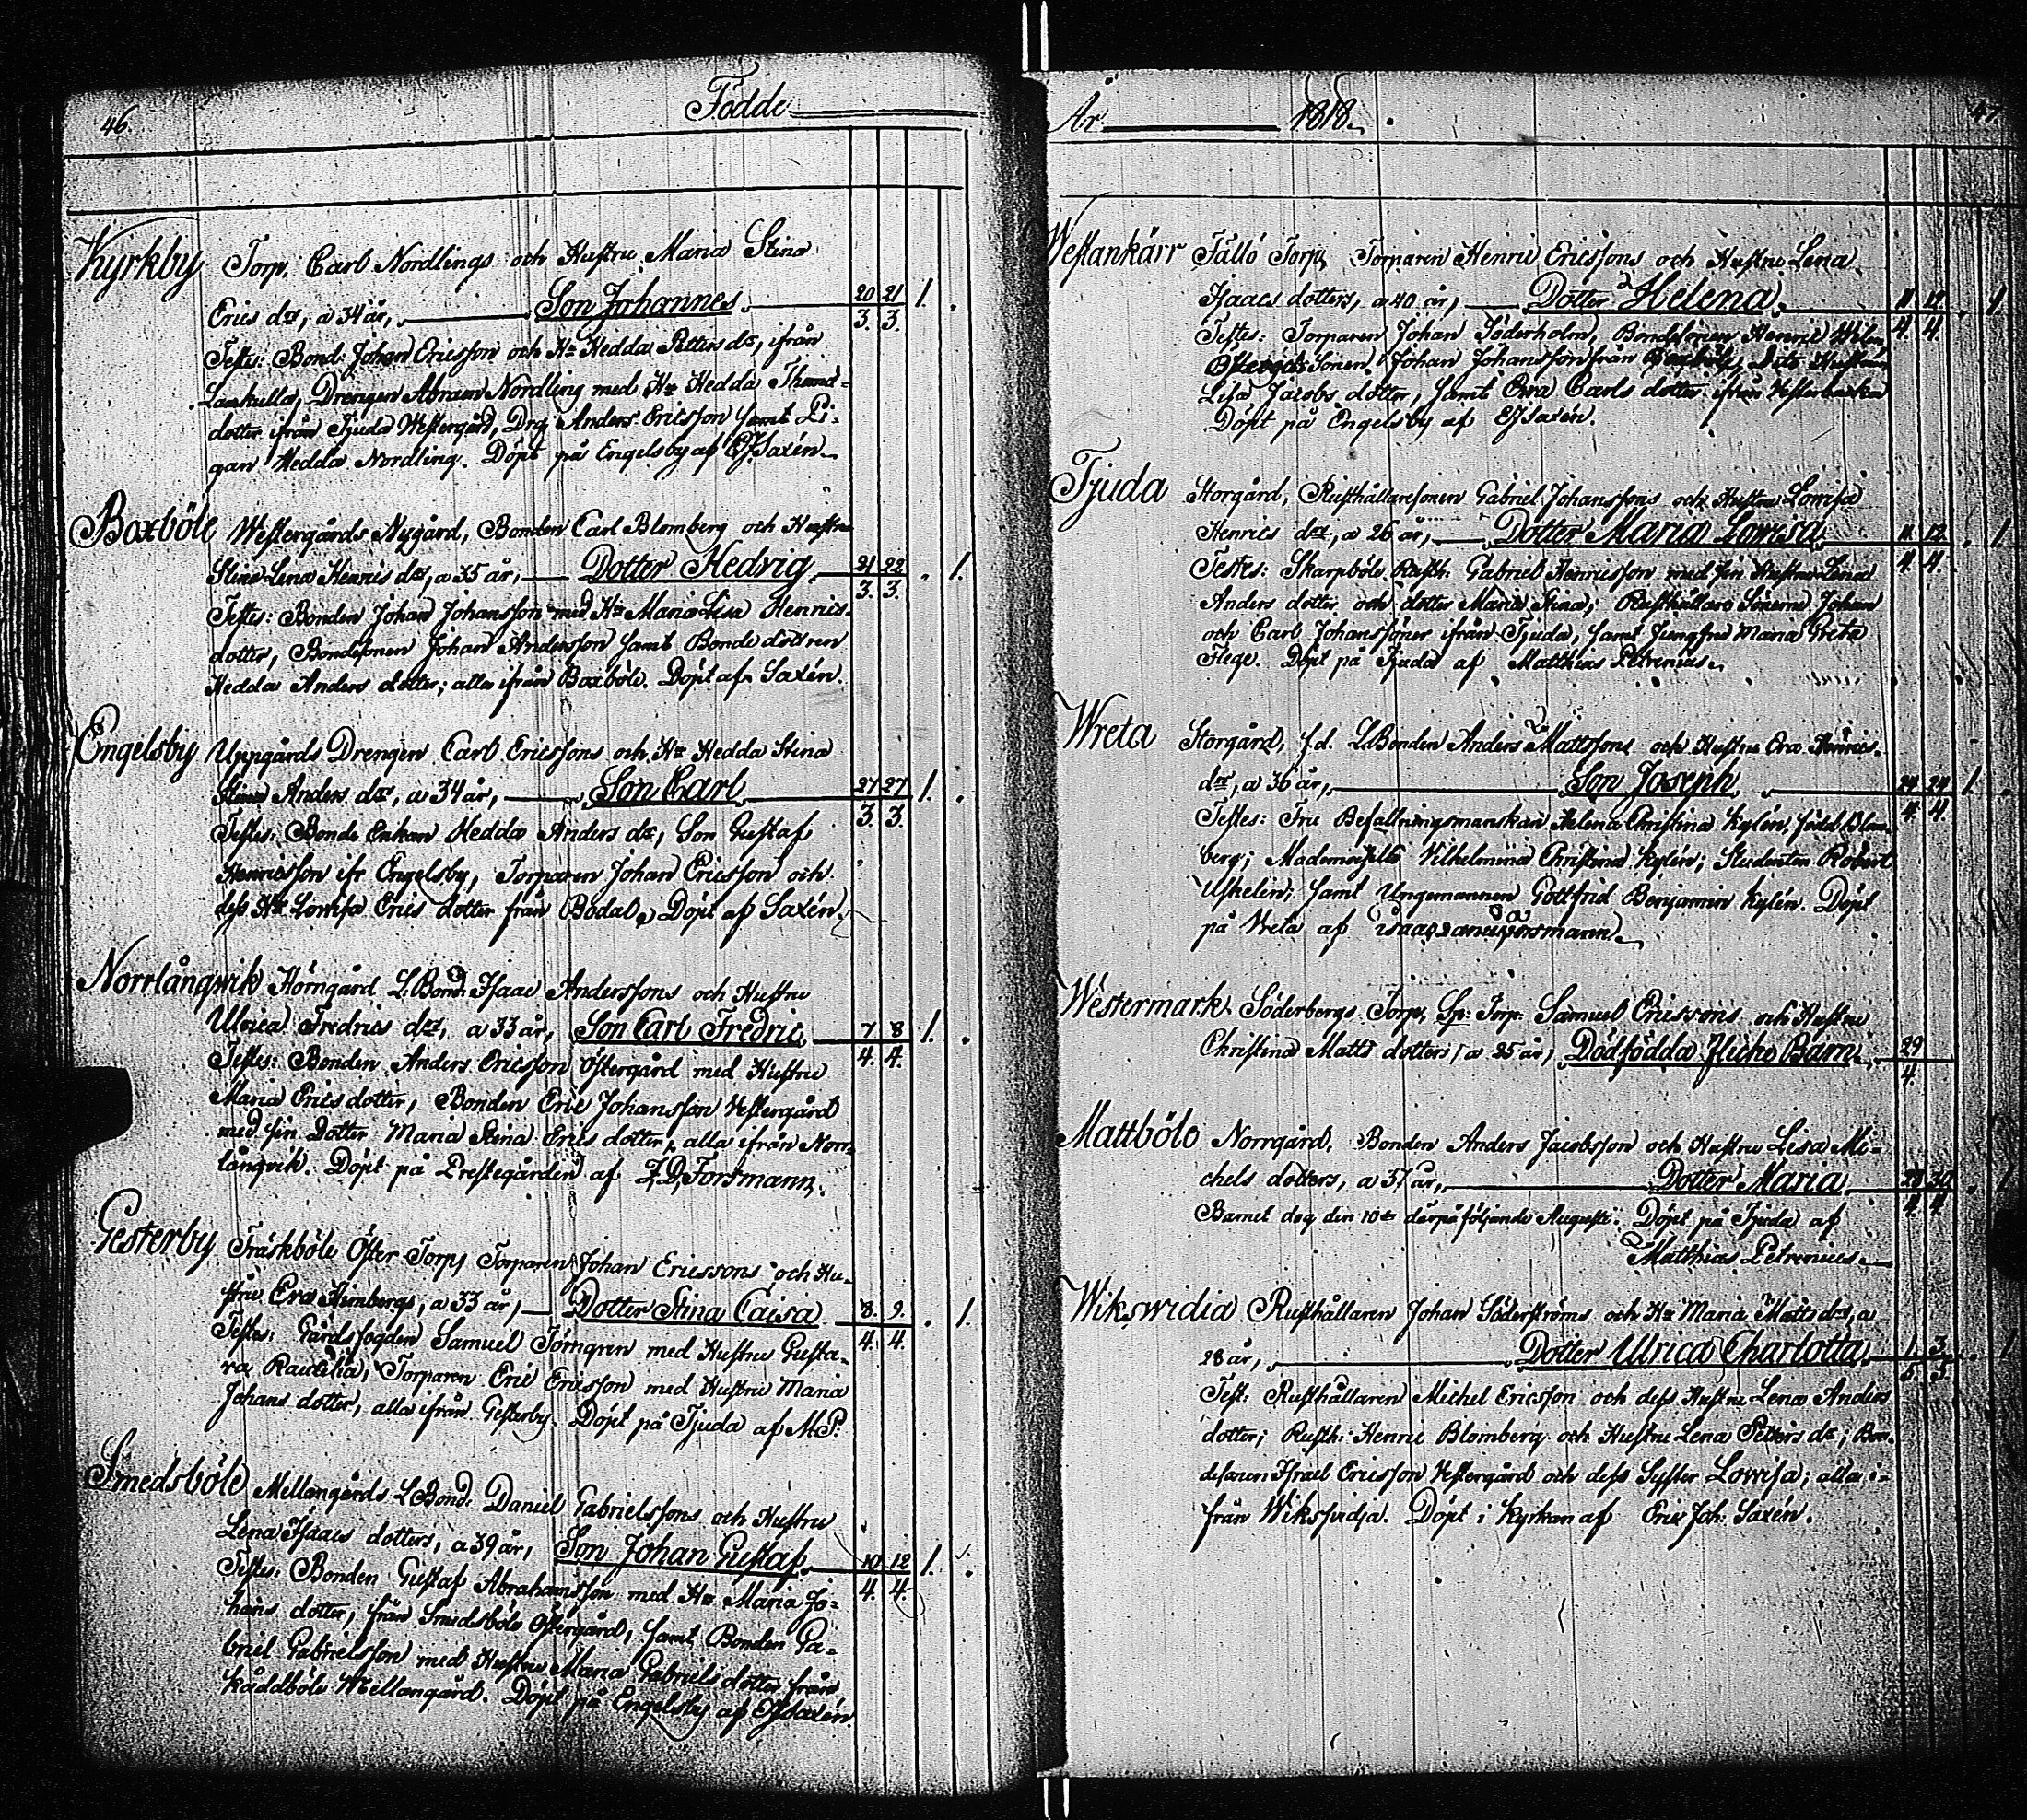 46.
Födde
Kyrkby Torp. Carl Nordlings och Hustru Maria Stina
Erics dr, a 34 år, Son Johannes 20 21 1.
3. 3.
Testes: Bond: Johan Ericsson och Hu Hedda Petters dr, ifrån
Laxkulla, Drengen Abram Nordling med Hu Hedda
dotter ifrån Tjuda Westergård, Drg Anders Ericsson samt Pi-
gan Hedda Nordling. Döpt på Engelsby af EJSaxén
Boxböle Westergårds Nygård, Bonden Carl Blomberg och Hustru
Stina Lena Henrics dr, a 35 år, Dotter Hedvig 21 22 1.
3. 3.
Testes: Bonden Johan Johansson med Hu Maria Lisa Henrics
dotter, Bondesonen Johan Andersson samt Bonde dottren
Hedda Anders dotter; alla ifrån Boxböle. Döpt af Saxén.
Engelsby Uppgårds Drengen Carl Ericssons och Hu Hedda Stina
Stina Anders dr, a 34 år, Son Carl 27 27 1.
3. 3.
Testes: Bonde Enkan Hedda Anders dr, Son Gustaf
Henricsson ifr Engelsby, Torparen Johan Ericsson och
dess Hu Lovisa Erics dotter från Bodal, Döpt af Saxén.
Norrlångvik Hörngård L: Bond: Isaac Anderssons och Hustru
Ulrica Fredrics dr, a 33 år, Son Carl Fredric 7 8 1.
4. 4.
Testes: Bonden Anders Ericsson Östergård med Hustru
Maria Erics dotter, Bonden Eric Johansson Vestergård
med sin Dotter Maria Stina Erics dotter, alla ifrån Norr-
långvik. Döpt på Prestegården af I,D,Forsmann.
Gesterby Träskböle Öfter Torp, Torparen Johan Ericssons och Hu-
stru Eva Himbergs, a 33 år, Dotter Stina Caisa 8. 9. 1.
4. 4.
Testes: Gårdsfogden Samuel Törngren med Hustru Gusta-
va Raucelia, Torparen Eric Ericsson med Hustru Maria
Johans dotter, alla ifrån Gesterby. Döpt på Tjuda af M.P.
Smedsböle Mellangårds L Bond: Daniel Gabrielssons och Hustru
Lena Isaacs dotters, a 39 år, Son Johan Gustaf 10 12 1.
4. 4.
Testes: Bonden Gustaf Abrahamsson med Hu Maria Jo-
hans dotter, från Smedsböle Östergård, samt Bonden Ga-
briel Gabrielsson med Hustru Maria Gabriels dotter från
Kåddböle Mellangård. Döpt på Engelsby af EJSaxén.
År 1818. 47.
Westankärr Fallö Torp, Torparen Henric Ericssons och Hustru Lena
Isaacs dotters, a 40 år, Dotter Helena 11 12 1
4. 4.
Testes: Torparen Johan Söderholm, Bondesonen Henric
Sonen Johan Johansson från Boxböle, Hustrun
Lisa Jacobs dotter, samt Eva Carls dotter ifrån Vesterbacka
Döpt på Engelsby af EJSaxén.
Tjuda Storgård, Rusthållaresonen Gabriel Johanssons och Hustru Lovisa
Henrics dr, a 26 år, Dotter Maria Lovisa 11. 12. 1
4. 4.
Testes: Skarpböle Rusth: Gabriel Henricsson med sin Hustru Lena
Anders dotter och dotter Maria Stina; Rusthållare Sönerne Johan
och Carl Johanssöner ifrån Tjuda, samt Jungfru Maria Greta
Flege. Döpt på Tjuda af Matthias Petrenius.
Wreta Storgård, f.d. L.Bonden Anders Mattssons och Hustru Eva Henrics
dr, a 36 år, Son Joseph 24 24 1.
4. 4.
Testes: Fru Befallningsmanskan Helena Christina Kylén, född Blom-
berg; Mademoiselle Vilhelmina Christina Kylén; Studenten Robert
Uschelin; samt Ungemannen Gottfrid Benjamin Kylén. Döpt
på Vreta af Isaac Daniel Forsmann.
Westermark Söderbergs Torp, Sp: Torp: Samuel Ericssons och Hustru
Christina Matts dotters, a 25 år, Dödfödda Flicko Barn 29
4.
Mattböle Norrgård, Bonden Anders Jacobsson och Hustru Lisa Mi-
chels dotters, a 37 år, Dotter Maria 28 30 1
4. 4.
Barnet dog den 10de därpå följande Augusti. Döpt på Tjuda af
Matthias Petrenius
Wikswidia Rusthållaren Johan Söderströms och Hu Maria Matts dr, a
28 år, Dotter Ulrica Charlotta 1. 3. 1
5. 5.
Test: Rusthållaren Michel Ericsson och dess Hustru Lena Anders
dotter; Rusth: Henric Blomberg och Hustru Lena Petters dr; Bon-
desonen Israel Ericsson Vestergård och dess Syster Lovisa; alla i-
från Wiksvidja. Döpt i Kyrkan af Eric Joh. Saxén.